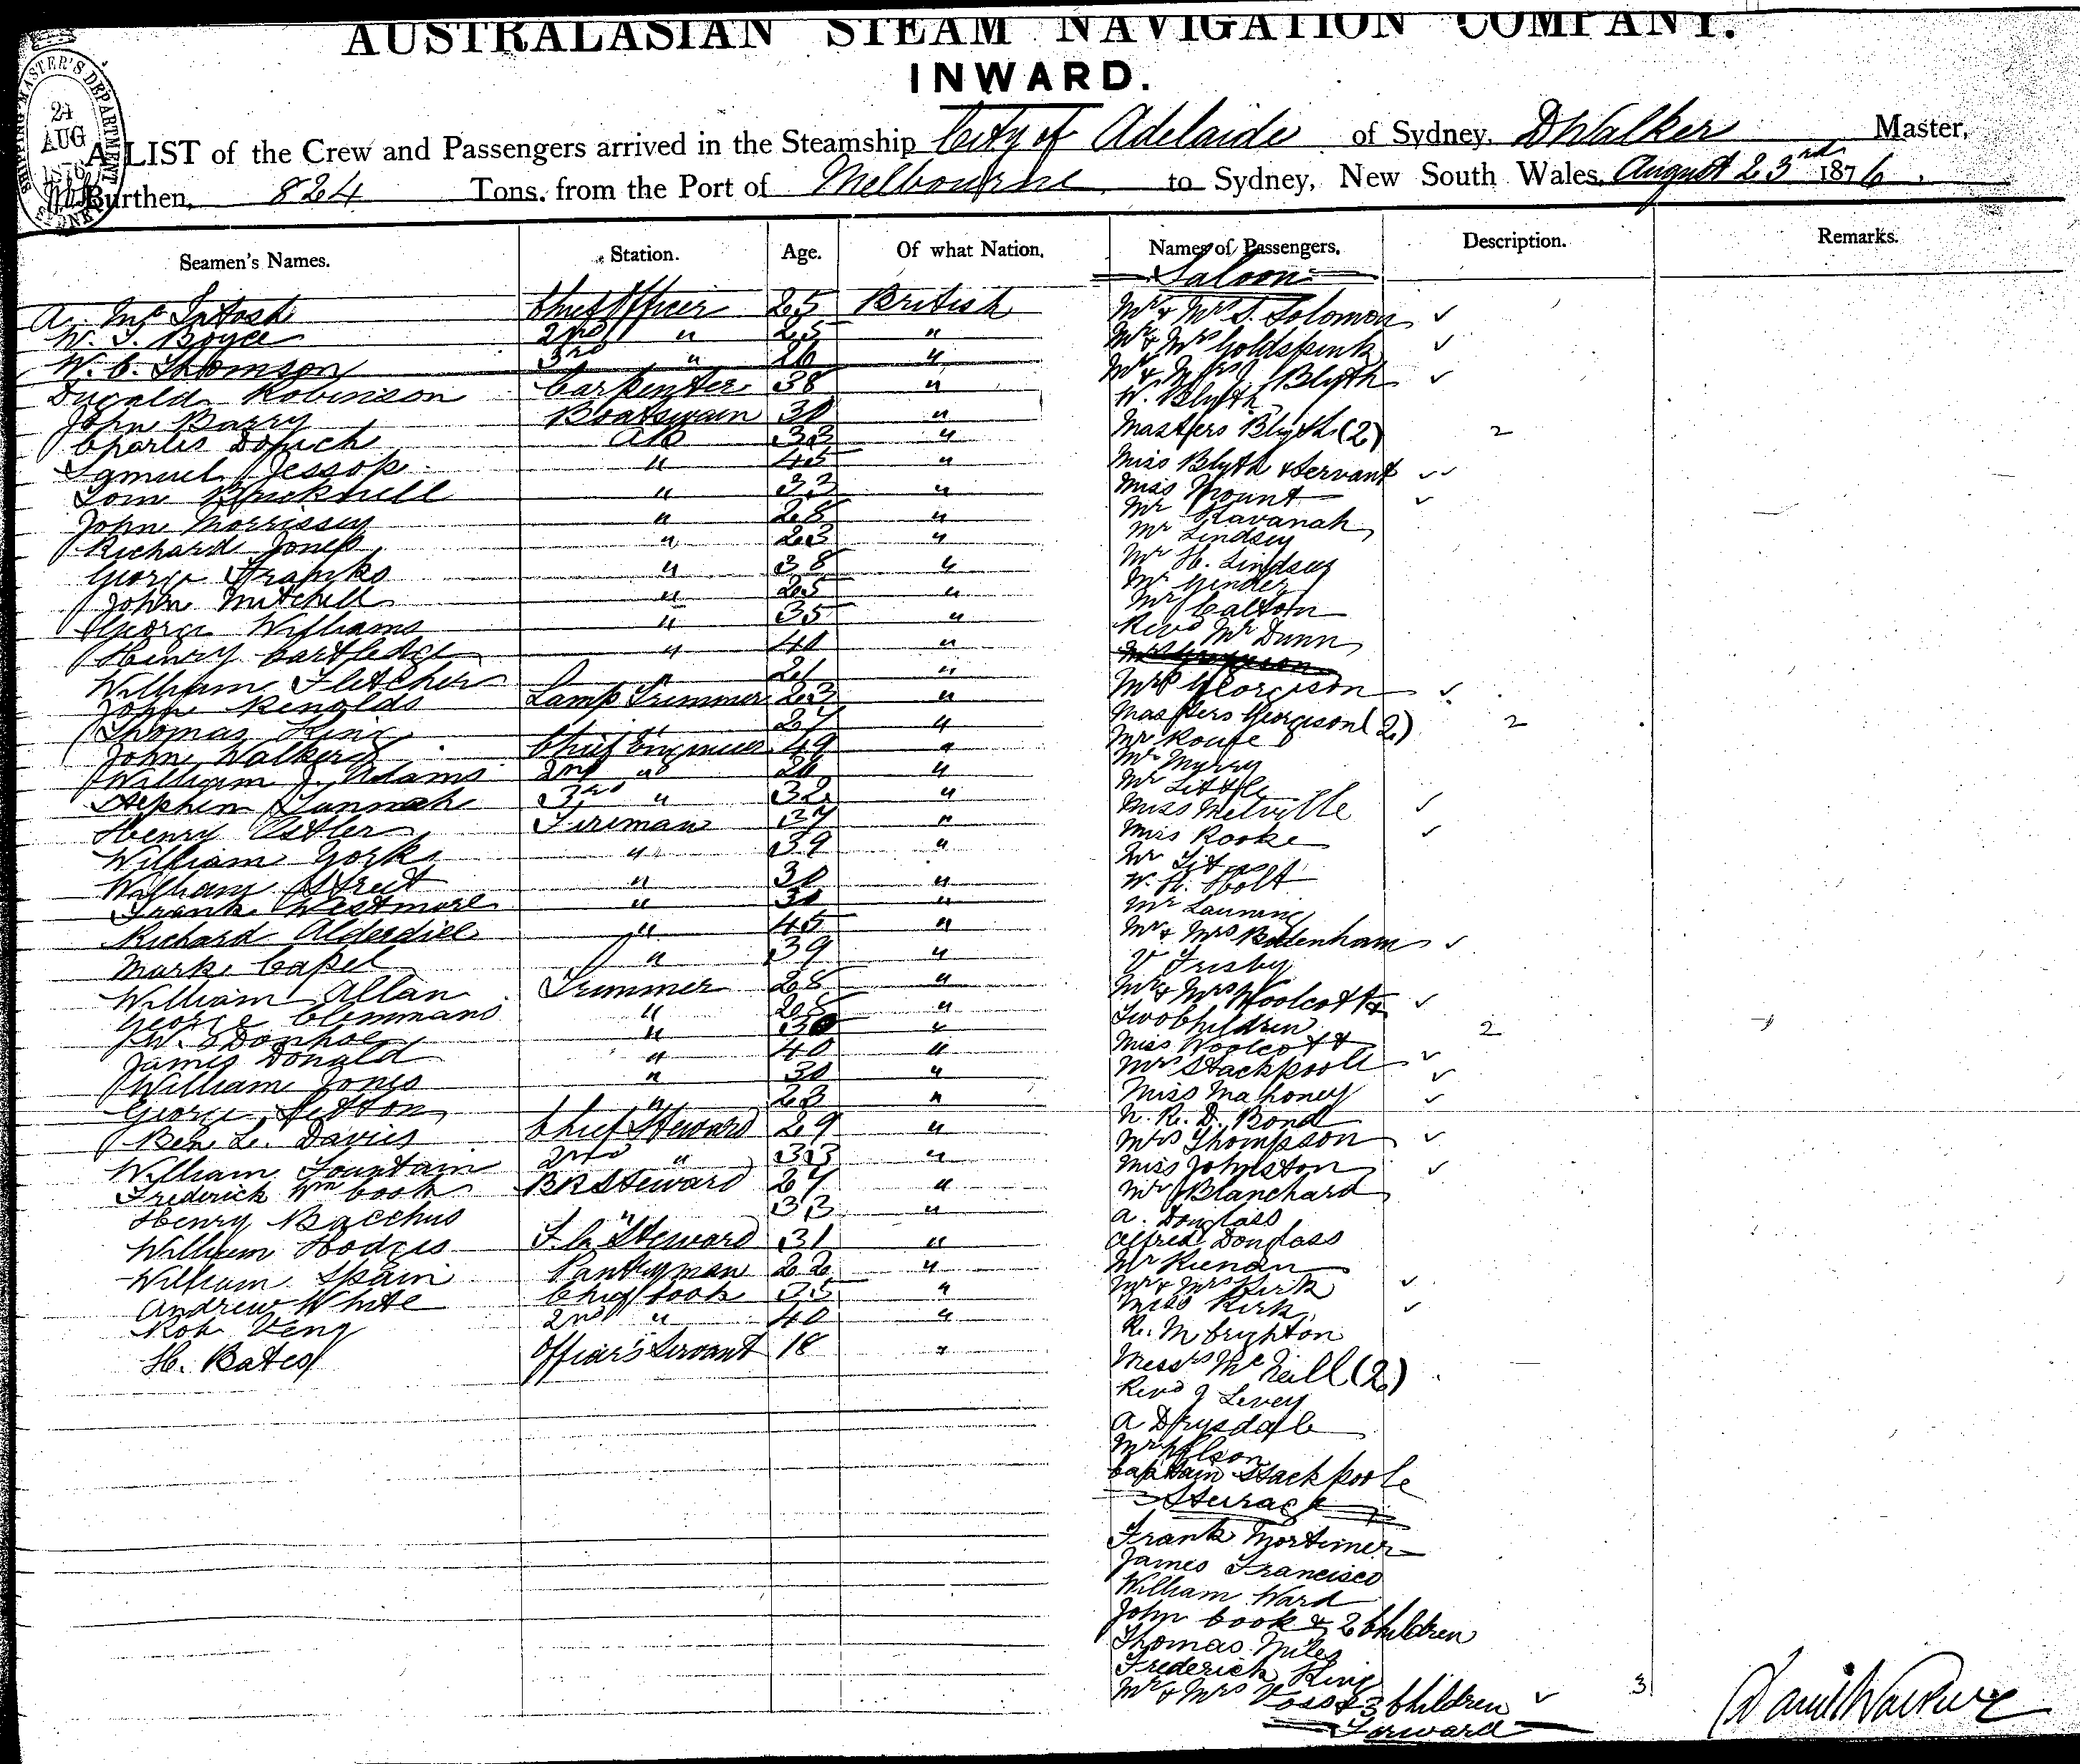 AUSTRALASIAN STEAM NAVIGATION COMPANY.
INWARD.
SHIPPING MASTER'S DEPARTMENT
24
AUG
1876
SYDNEY
A LIST of the Crew and Passengers arrived in the Steamship City of Adelaide of Sydney, D Walker Master,
Burthen, 824 Tons, from the Port of Melbourne to Sydney, New South Wales, August 23rd 1876.
Seamen's Names. Station. Age. Of what Nation. Names of Passengers. Description. Remarks.
Saloon
A. McIntosh Chief Officer 25 British Mr & Mrs S. Solomon
W. J. Boyce 2nd " 25 " Mr & Mrs Goldspink
W. C. Thomson 3rd " 26 " Mr & Mrs Blyth
Dugald Robinson Carpenter 38 " W. Blyth
John Barry Boatswain 30 " Masters Blyth (2) 2
Charles AB 33 "
Samuel Jessop " 45 " Miss Blyth & Servant
Tom Bricknell " 33 " Miss Mount
John Morrissey " 28 " Mr Kavanah
Richard Jones " 23 " Mr Lindsey
George Franks " 38 " Mr H. Lindsey
John Mitchell " 25 " Mr Ginder
George Williams " 35 " Mr Calton
Henry Cartledge " 40 " Revd Mr Dunn
William Fletcher " 21 "
John Renolds Lamp Trimmer 23 " Mrs Georgison
Thomas King " 27 " Masters Georgison (2) 2
John Walker Chief Engineer 49 " Mr Roufe
William J. Adams 2nd " 26 " Mr Myrry
Stephen Tunnah 3rd " 32 " Mr Little
Henry Astler Fireman 37 " Miss Melville
William York " 39 " Miss Rooke
William Street " 30 " Mr Titmas
Frank Westmore " 30 " W. H. Holt
Richard Alderdice " 45 " Mr Launing
Mark Capel " 39 " Mr & Mrs Bodenham
William Allan Trimmer 28 " V Frisby
George Clemmans " 28 " Mr & Mrs Woolcott &
W. O'Donhoe " 30 " Two Children 2
James Donald " 40 " Miss Woolcott
William Jones " 30 " Mrs Stackpoole
George Setton " 23 " Miss Mahoney
Ben L. Davies Chief Steward 29 " N. R. D. Bond
William Fountain 2nd " 33 " Mrs Thompson
Frederick Wm Cook BR Steward 27 " Miss Johnston
Henry Bacchus " 33 " Mr Blanchard
William Hodges F. C. Steward 31 " A. Douglass
William Spain Pantryman 22 " Alfred Douglass
Andrew White Chief Cook 35 " Mr Kienan
Rob Veny 2nd " 40 " Mr & Mrs Kirk
H. Bates Officer's Servant 18 " Miss Kirk
R. M Crighton
Messrs McNeill (2)
Revd J Levey
A Drysdale
Mr Wilson
Captain Stackpoole
Steerage
Frank Mortimer
James Francisco
William Ward
John Cook & 2 Children
Thomas Miles
Frederick King
Mr & Mrs Voss & 3 Children 3
Forward
Daniel Walker